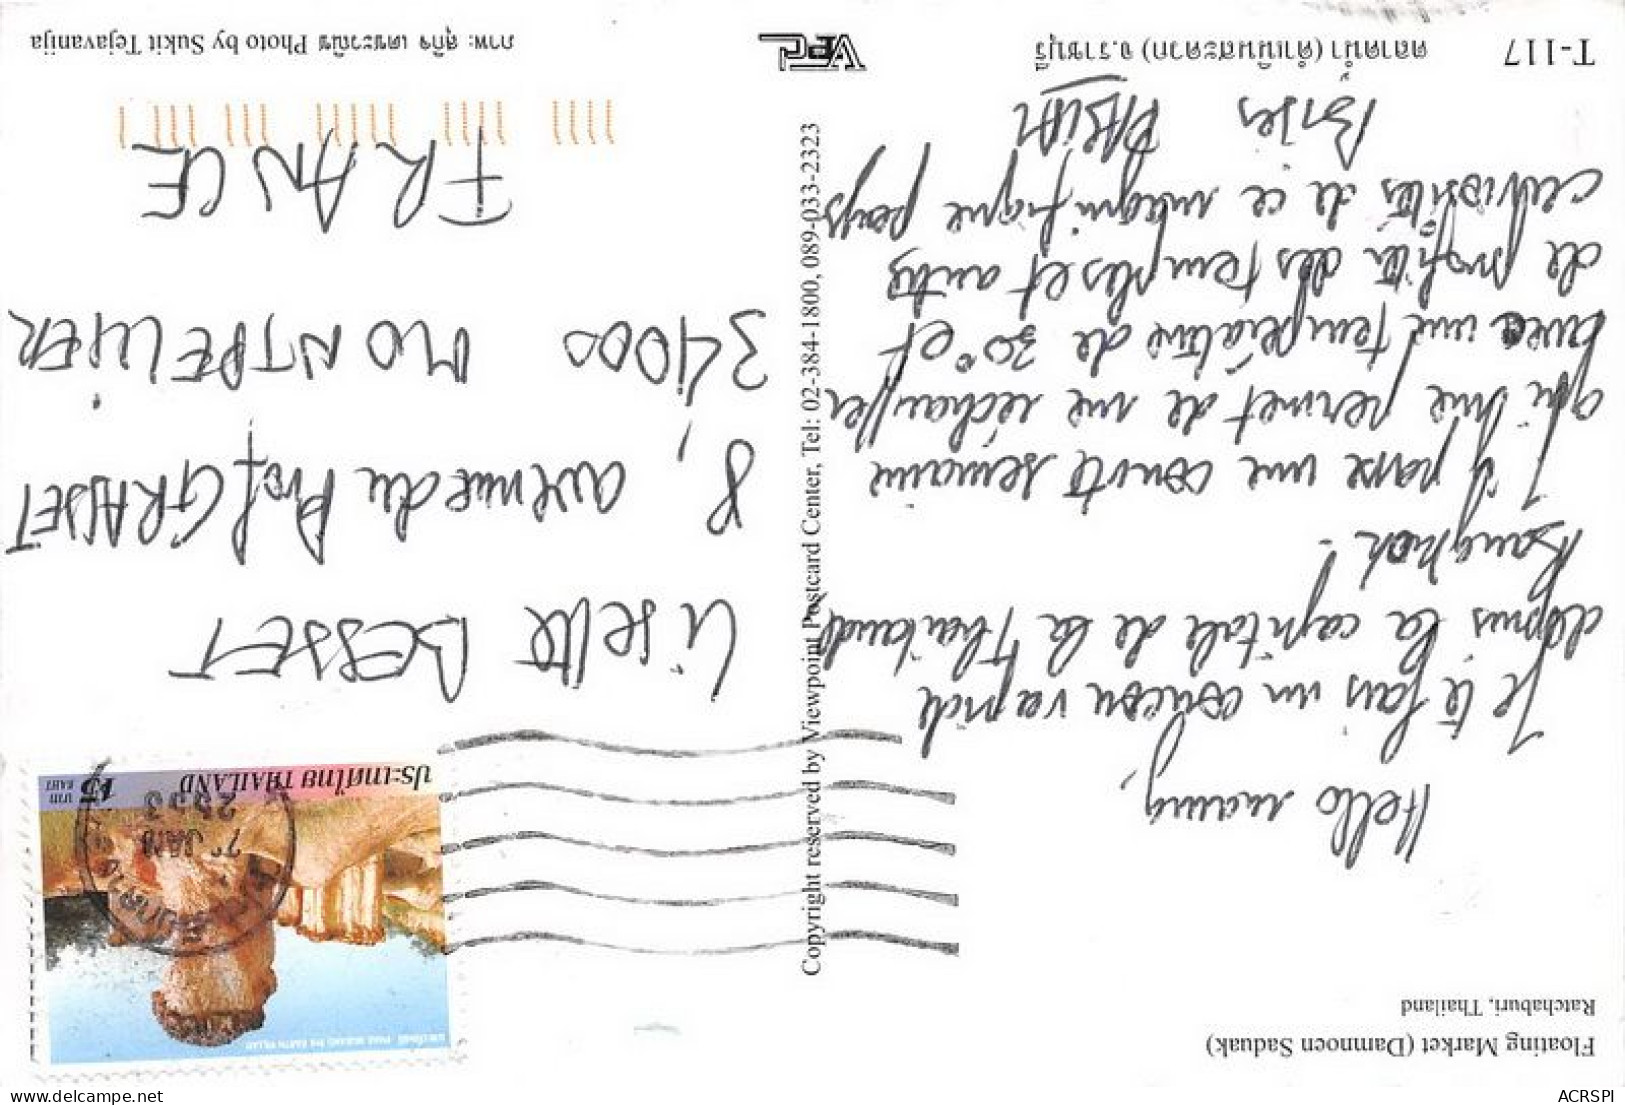 Floating Market (Damnoen Saduak)
Ratchaburi, Thailand
Hello mamy,
Je te fais un coucou rapide
depuis la capitale de la Thaïlande
Bangkok !
J'y passe une courte semaine
qui me permet de me réchauffer
avec une température de 30° et
de profiter des temples et autres
curiosités de ce magnifique pays
Bises FABIEN
T-117
ตลาดน้ำ (ดำเนินสะดวก) จ.ราชบุรี
Copyright reserved by Viewpoint Postcard Center, Tel: 02-384-1800, 089-033-2323
VPC
ประเทศไทย THAILAND
15
บาท
BAHT
PHAE MUEANG PHI EARTH PILLAR
7 JAN
Lisette BESSET
8, avenue du Prof GRASSET
34000 MONTPELLIER
FRANCE
ภาพ: สุกิจ เตชะวณิช Photo by Sukit Tejavanija
ACRSPI